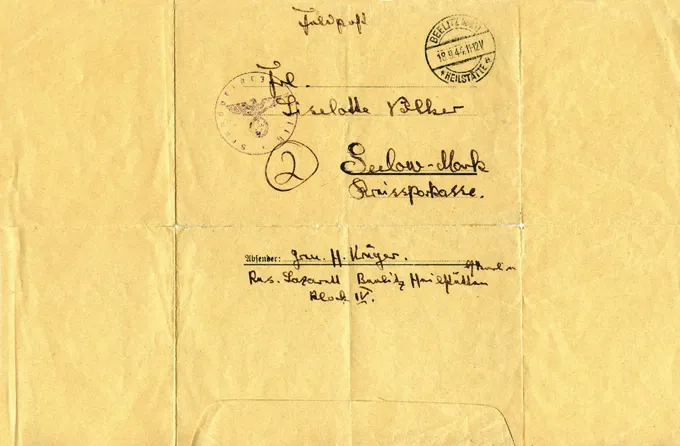 Feldpost
BEELITZ (MARK)
18.9.44.11-12V
* HEILSTÄTTE *
Frl.
Liselotte Völker
2
Seelow-Mark
Kreissparkasse.
Absender: Gren. H. Krüger.
b/Berlin
Res. Lazarett Beelitz Heilstätten
Block IV.